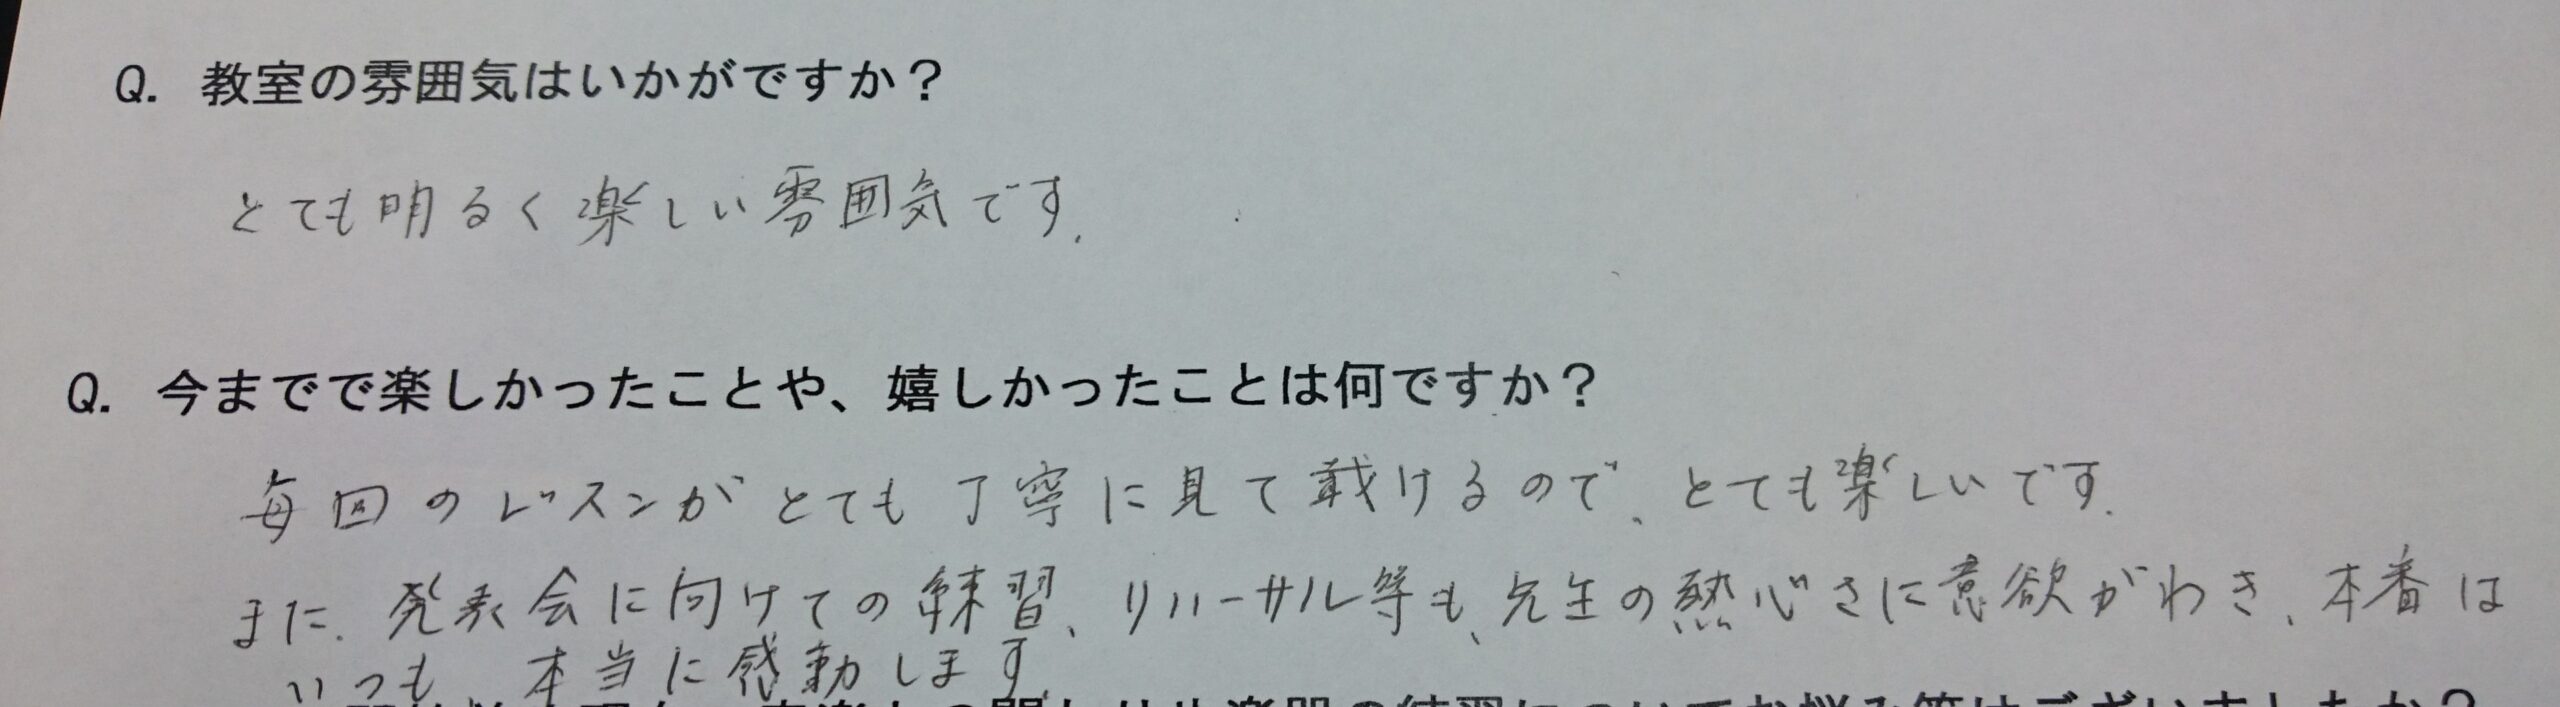 Q. 教室の雰囲気はいかがですか？
とても明るく楽しい雰囲気です.
Q. 今までで楽しかったことや、嬉しかったことは何ですか？
毎回のレッスンがとても丁寧に見て載けるので、とても楽しいです.
また、発表会に向けての練習、リハーサル等も、先生の熱心さに意欲がわき、本番は
いつも、本当に感動します.
楽器の練習についてお悩み等はございましたか？